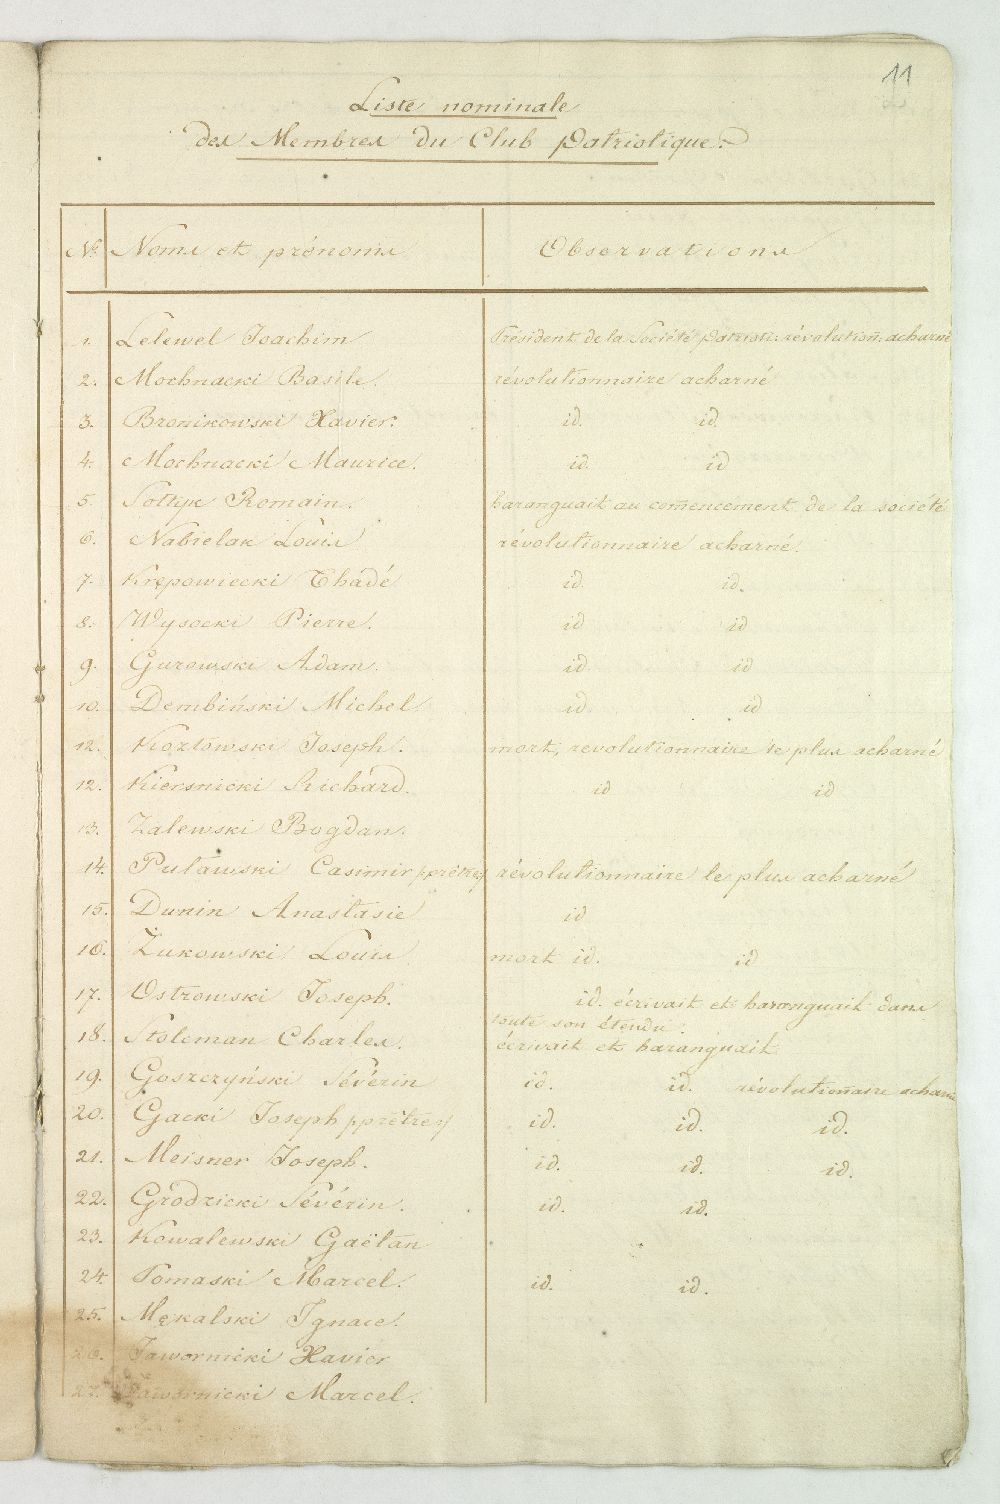 11
Liste nominale
des Membres du Club Patriotique.
No. Noms et prénoms Observations
1. Lelewel Joachim Président de la Société Patriot. révolution. acharné
2. Mochnacki Basile. révolutionnaire acharné
3. Bronikowski Xavier. id. id.
4. Mochnacki Maurice. id. id
5. Soltyk Romain. haranguait au comencement de la société
6. Nabielak Louis révolutionnaire acharné.
7. Krępowiecki Thadé id. id.
8. Wysocki Pierre. id id
9. Gurowski Adam. id. id
10. Dembiński Michel id. id
12. Kozłowski Joseph. mort, revolutionnaire le plus acharné
12. Kiersnicki Richard. id id
13. Zalewski Bogdan.
14. Puławski Casimir /:prêtre:/ révolutionnaire le plus acharné
15. Dunin Anastasie id
16. Żukowski Louis mort id. id
17. Ostrowski Joseph. id. écrivait et haranguait dans
toute son étendu.
18. Stoleman Charles. écrivait et haranguait
19. Goszczyński Sévérin id. id. révolutionaire acharné
20. Gacki Joseph /:prêtre:/ id. id. id.
21. Meisner Joseph. id. id. id.
22. Grodzicki Sévérin. id. id.
23. Kowalewski Gaëtan
24. Tomaski Marcel. id. id.
25. Mękalski Ignace.
26. Jawornicki Xavier
27. Jawornicki Marcel.